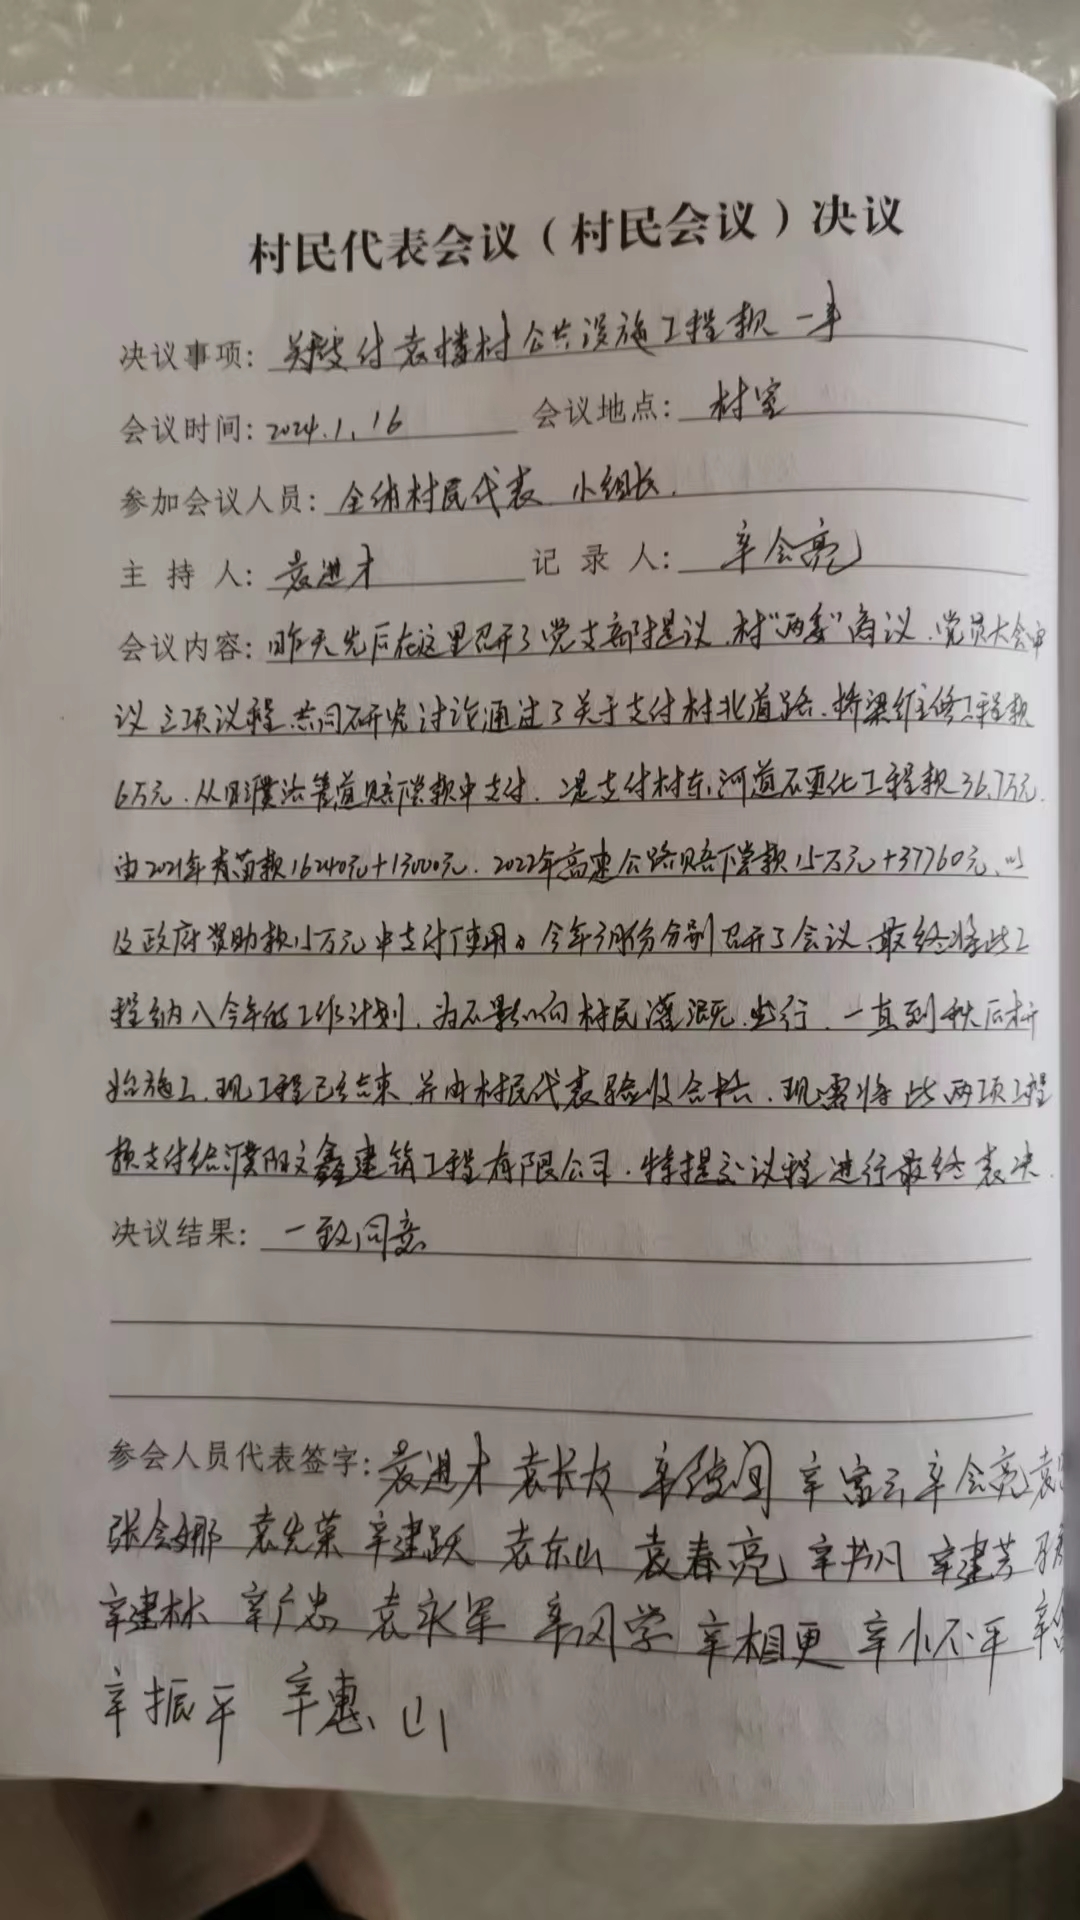 村民代表会议（村民会议）决议
决议事项：关于支付袁楼村公共设施工程款一事
会议时间：2024.1.16 会议地点：村室
参加会议人员：全体村民代表、小组长.
主持人：袁进才 记录人：辛会亮
会议内容：昨天先后在这里召开了党支部提议、村“两委”商议、党员大会审
议三项议程，共同研究讨论通过了关于支付村北道路、桥梁维修工程款
6万元，从濮法管道赔偿款中支付，二是支付村东河道硬化工程款36.7万元，
由2021年青苗款16240元+13000元，2022年高速公路赔偿款15万元+37760元，以
及政府奖助款15万元中支付使用。今年3月份分别召开了会议，最终将此工
程纳入今年的工作计划，为不影响村民灌溉、出行，一直到秋后才开
始施工，现工程已结束，并由村民代表验收合格，现需将此两项工程
款支付给濮阳文鑫建筑工程有限公司，特提交议程进行最终表决.
决议结果：一致同意
参会人员代表签字：袁进才 袁长友 辛 辛富云 辛会亮 袁
张会娜 袁先荣 辛建跃 袁东山 袁春亮 辛书凡 辛建芳
辛建林 辛广忠 袁永军 辛凤学 辛相更 辛小不平 辛
辛振平 辛惠山